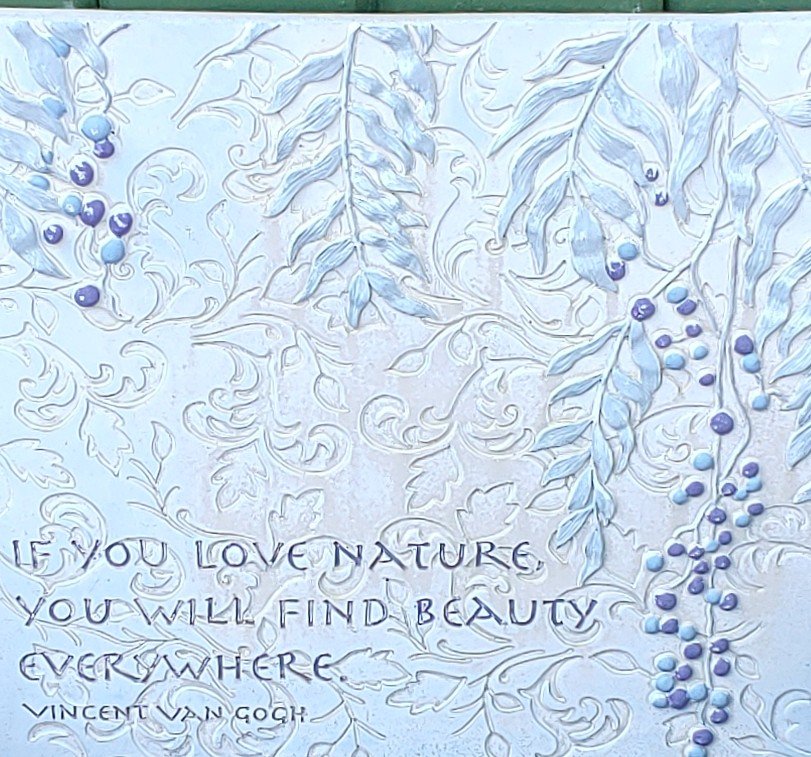 IF YOU LOVE NATURE,
YOU WILL FIND BEAUTY
EVERYWHERE.
VINCENT VAN GOGH